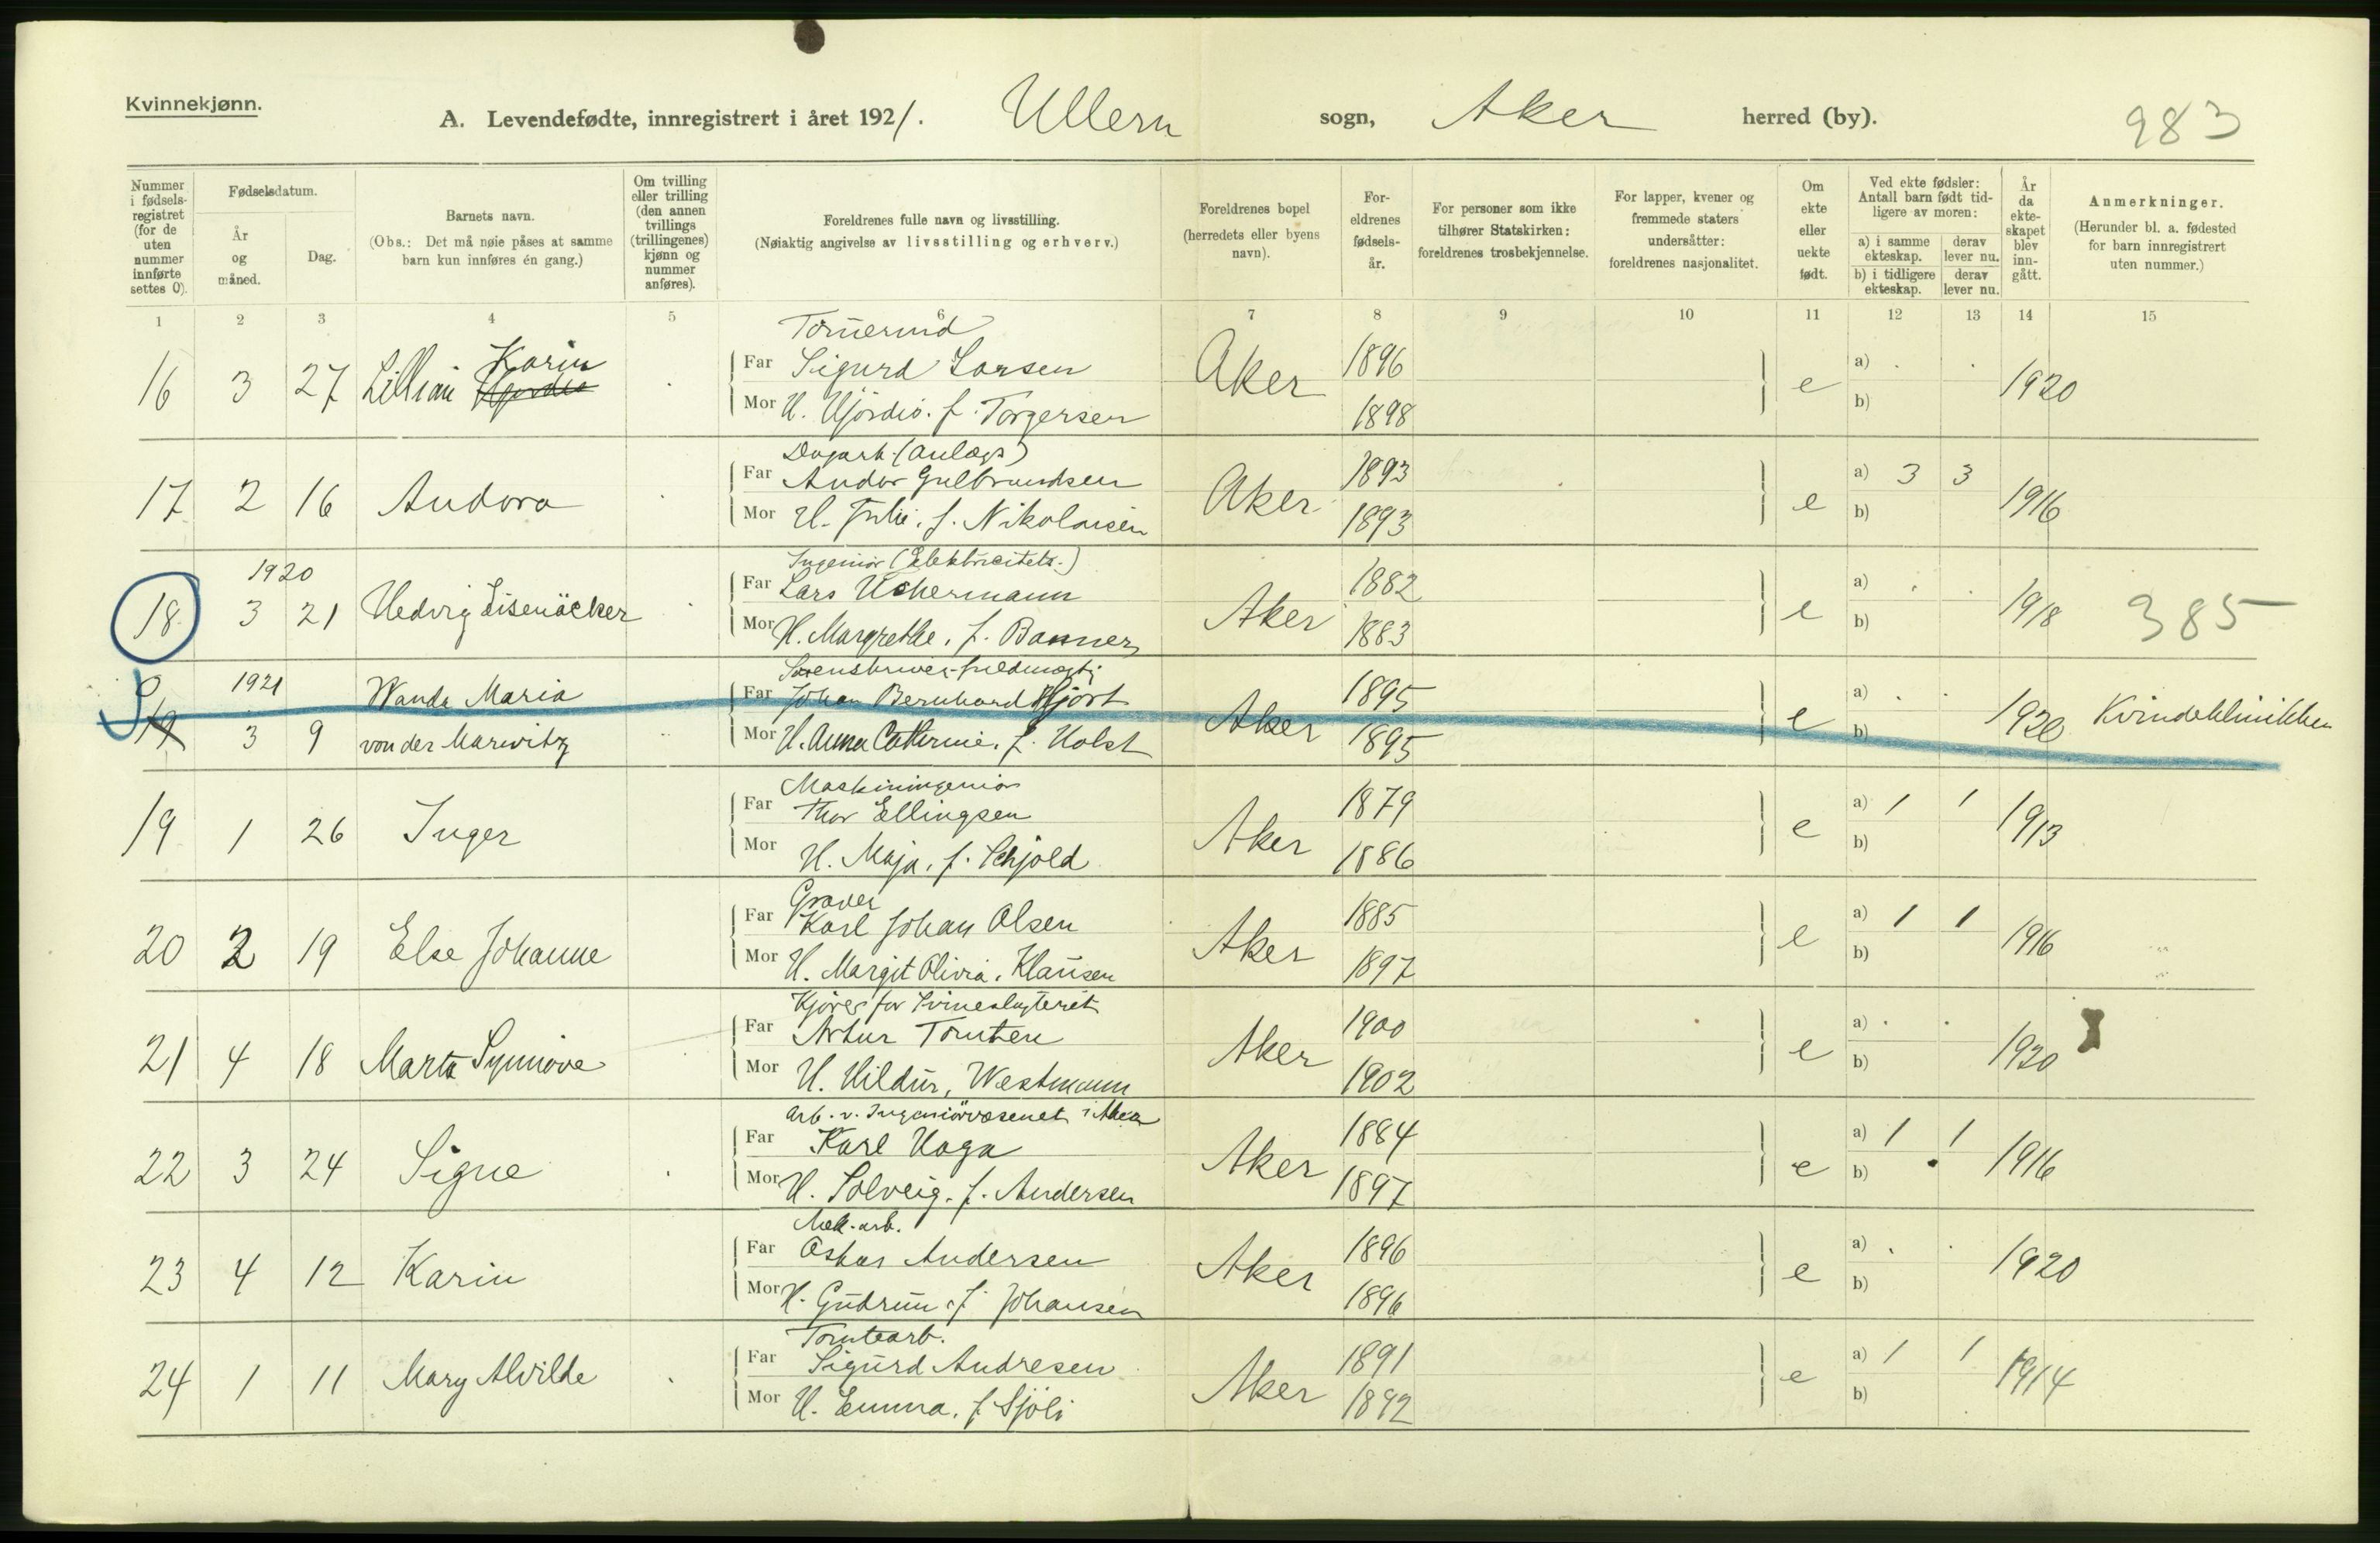 Kvinnekjønn.
A. Levendefødte, innregistrert i året 1921. Ullern sogn, Aker herred (by). 983
Nummer i fødsels-registret (for de uten nummer innførte settes 0).
Fødselsdatum.
År og måned.
Dag.
Barnets navn.
(Obs.: Det må nøie påses at samme barn kun innføres én gang.)
Om tvilling eller trilling (den annen tvillings (trillingenes) kjønn og nummer anføres).
Foreldrenes fulle navn og livsstilling.
(Nøiaktig angivelse av livsstilling og erhverv.)
Foreldrenes bopel (herredets eller byens navn).
For-eldrenes fødsels-år.
For personer som ikke tilhører Statskirken: foreldrenes trosbekjennelse.
For lapper, kvener og fremmede staters undersåtter: foreldrenes nasjonalitet.
Om ekte eller uekte født.
Ved ekte fødsler: Antall barn født tid-ligere av moren:
a) i samme ekteskap.
derav lever nu.
b) i tidligere ekteskap.
derav lever nu.
År da ekte-skapet blev inn-gått.
Anmerkninger.
(Herunder bl. a. fødested for barn innregistrert uten nummer.)
1 2 3 4 5 6 7 8 9 10 11 12 13 14 15
16 3 27 Lillian Hjørdis Karin
Far Sigurd Larsen Aker 1896 e a) 1920
Mor H. Hjørdis. f. Torgersen 1898 b)
Dagarb. (anlægs)
17 2 16 Andora Far Andor Gulbrandsen Aker 1893 e a) 3 3 1916
Mor H. Julie. f. Nikolaisen 1893 b)
1920 Ingeniør (Elektricitets.)
18 3 21 Hedvig Far Lars Uchermann Aker 1882 e a) 1918 385
Mor H. Margrethe. f. Banner 1883 b)
1921
19 3 9 Wanda Maria von der Marwitz Far Johan Bernhard Hjort Aker 1895 e a) 1920 Kvindeklinikken
Mor H. Anna Cathrine. f. Holst 1895 b)
Maskiningeniør
19 1 26 Inger Far Thor Ellingsen Aker 1879 e a) 1 1 1913
Mor H. Maja. f. Schjold 1886 b)
Graver
20 2 19 Else Johanne Far Karl Johan Olsen Aker 1885 e a) 1 1 1916
Mor H. Margit Olivia. Klausen 1897 b)
Kjører for Svineslagteriet
21 4 18 Marta Synnøve Far Artur Tomter Aker 1900 e a) 1920
Mor H. Hildur, Westmann 1902 b)
Arb. v. Ingeniørvæsenet i Aker
22 3 24 Signe Far Karl Haga Aker 1884 e a) 1 1 1916
Mor H. Solveig. f. Andersen 1897 b)
Mek. arb.
23 4 12 Karin Far Oskar Andersen Aker 1896 e a) 1920
Mor H. Gudrun f. Johansen 1896 b)
Tomtearb.
24 1 11 Mary Alvilde Far Sigurd Andresen Aker 1891 e a) 1 1 1914
Mor H. Emma. f. Sjøli 1892 b)